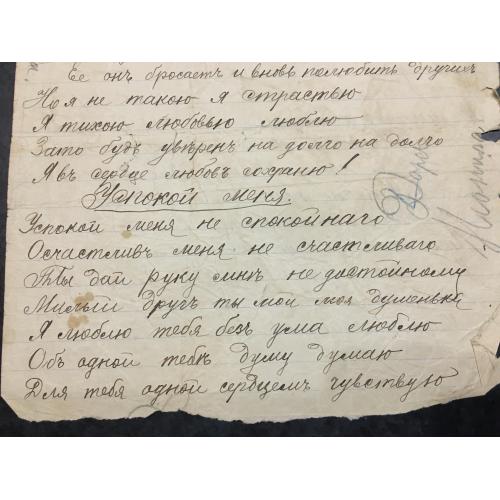 Ее онъ бросаетъ и вновь полюбитъ другихъ
Но я не такою я страстью
Я тихою любовью люблю
Зато будь увѣренъ на долго на долго
Я въ сердце любовь сохраню!
Успокой меня.
Успокой меня не спокойнаго
Осчастливъ меня не счастливаго
Ты дай руку мнѣ не достойному
Милый другъ ты мой моя душенька
Я люблю тебя безъ ума люблю
Объ одной тебѣ думу думаю
Для тебя одной сердцемъ чувствую